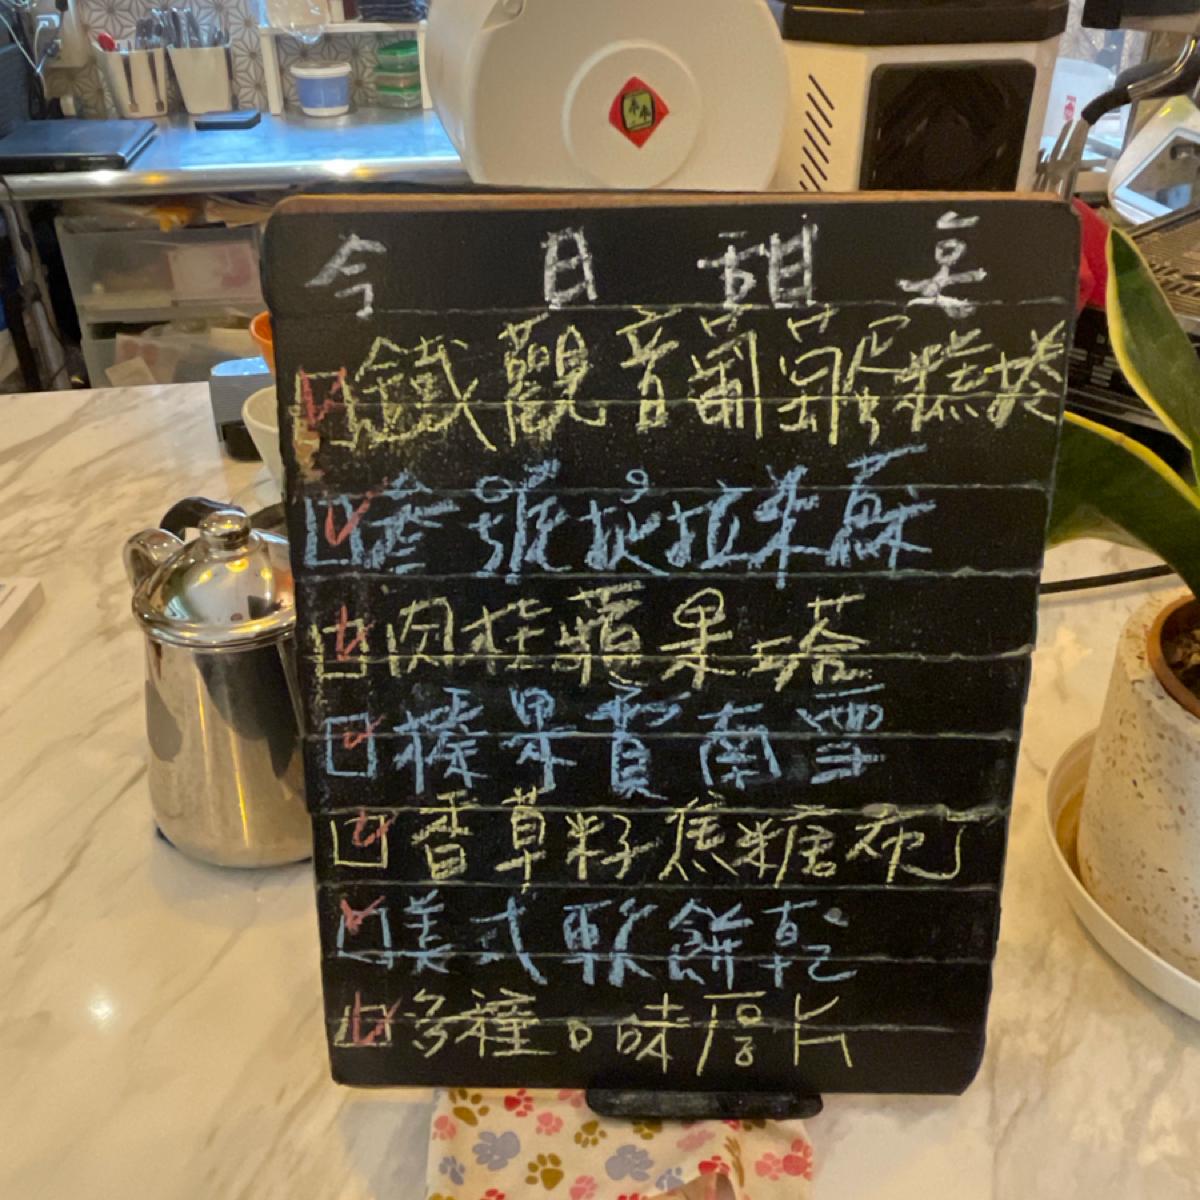 今日甜点
鐵觀音葡萄蛋糕捲
提拉米蘇
肉桂蘋果塔
榛果費南雪
香草籽焦糖布丁
美式軟餅乾
多種口味厚片